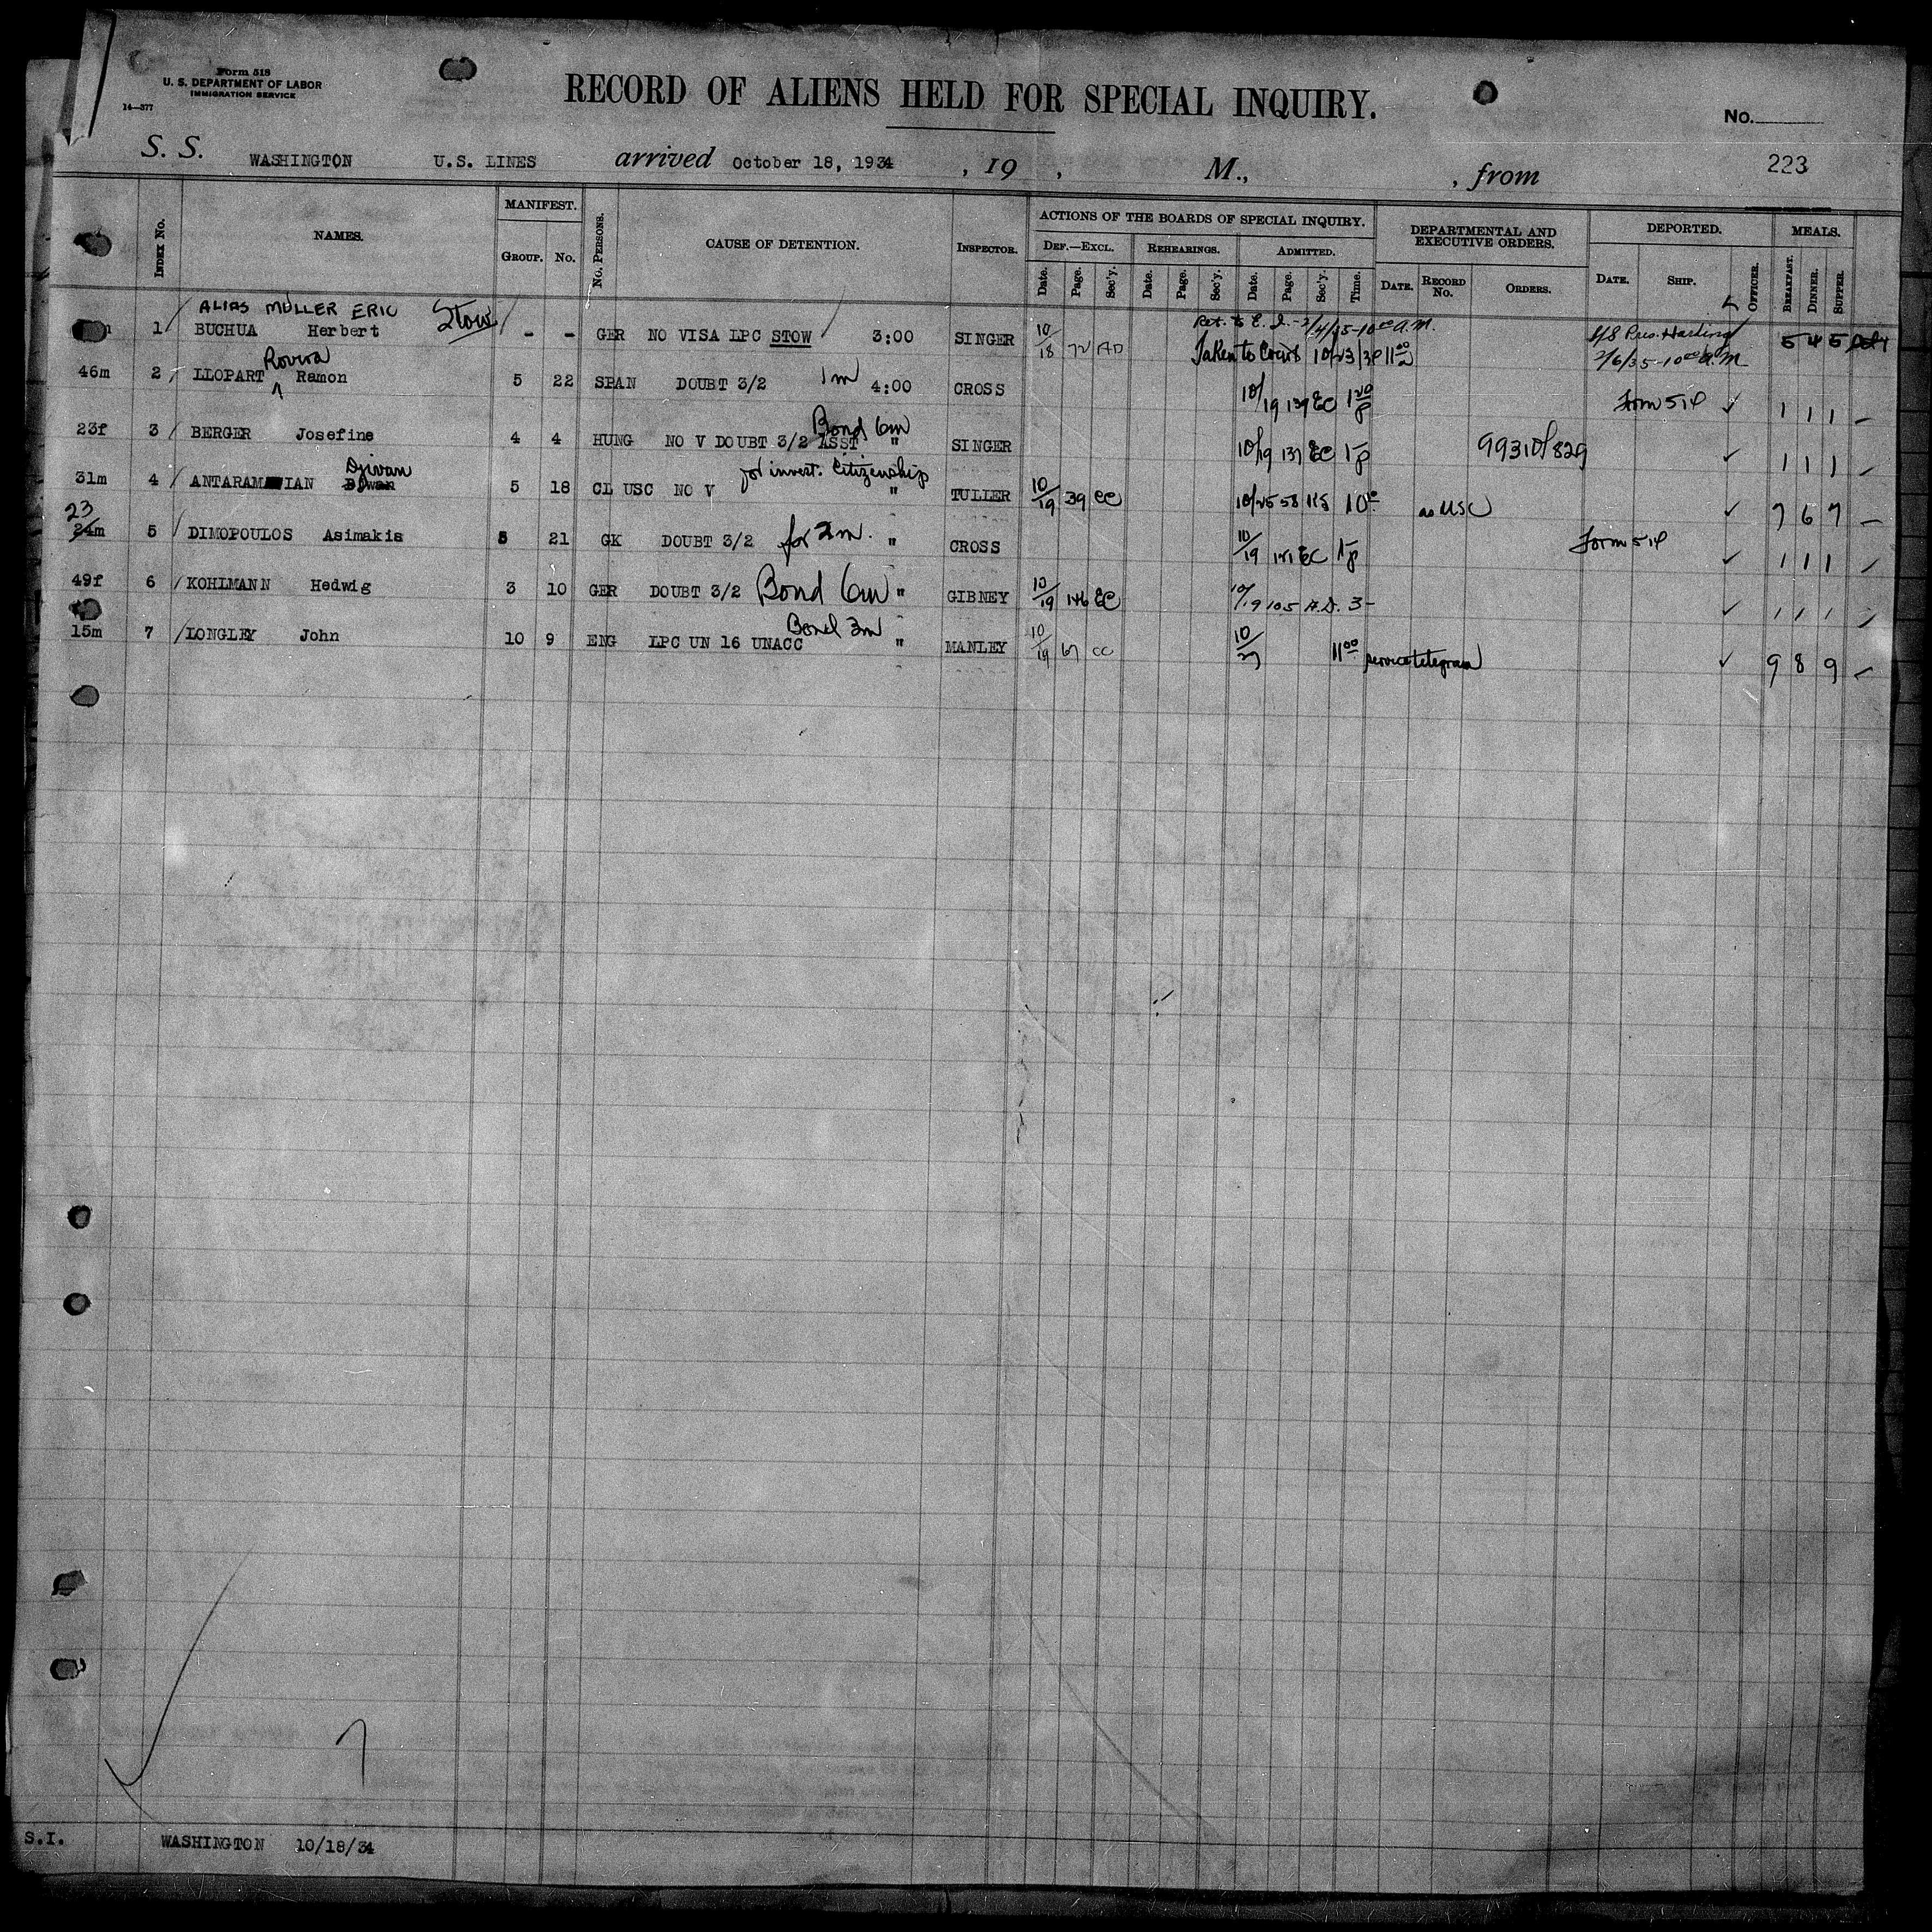 Form 518
U. S. DEPARTMENT OF LABOR
IMMIGRATION SERVICE
14—377
RECORD OF ALIENS HELD FOR SPECIAL INQUIRY.
No.
S. S. WASHINGTON U.S. LINES arrived October 18, 1934 , 19 , M., , from 223
INDEX No. NAMES. MANIFEST. GROUP. No. No. PERSONS. CAUSE OF DETENTION. INSPECTOR.
ACTIONS OF THE BOARDS OF SPECIAL INQUIRY. DEF.—EXCL. REHEARINGS. ADMITTED.
Date. Page. Sec'y. Date. Page. Sec'y. Date. Page. Sec'y. Time.
DEPARTMENTAL AND EXECUTIVE ORDERS. DATE. RECORD No. ORDERS.
DEPORTED. DATE. SHIP. OFFICER. MEALS. BREAKFAST. DINNER. SUPPER.
ALIAS MÜLLER ERIC Stow Ret. to E. I. - 2/4/35-10 00 A.M. S/S Pres. Harding
1 BUCHUA Herbert - - GER NO VISA LPC STOW 3:00 SINGER 10/18 72 AD Taken to Court 10/23/34 11 00 2/6/35-10 00 A.M. 5 4 5
Rovira
46m 2 LLOPART ^ Ramon 5 22 SPAN DOUBT 3/2 1m 4:00 CROSS 10/19 139 EC 1 20 P Form 514 ✓ 1 1 1 –
Bond 6m
23f 3 BERGER Josefine 4 4 HUNG NO V DOUBT 3/2 ASST " SINGER 10/19 137 EC 1 - p 99310/829 ✓ 1 1 1 –
Djivan for invest. Citizenship
31m 4 ANTARAMIAN 5 18 CL USC NO V " TULLER 10/19 39 EC 10/25 58 10 as USC ✓ 7 6 7 –
23
24m 5 DIMOPOULOS Asimakis 5 21 GK DOUBT 3/2 for 2m. " CROSS 10/19 141 EC 1 - p Form 514 ✓ 1 1 1 –
49f 6 KOHLMANN Hedwig 3 10 GER DOUBT 3/2 Bond 6m " GIBNEY 10/19 146 EC 10/19 105 A.D. 3- ✓ 1 1 1 –
Bond 3m
15m 7 LONGLEY John 10 9 ENG LPC UN 16 UNACC " MANLEY 10/19 67 CC 10/27 11 00 service telegram ✓ 9 8 9 –
7
S.I. WASHINGTON 10/18/34